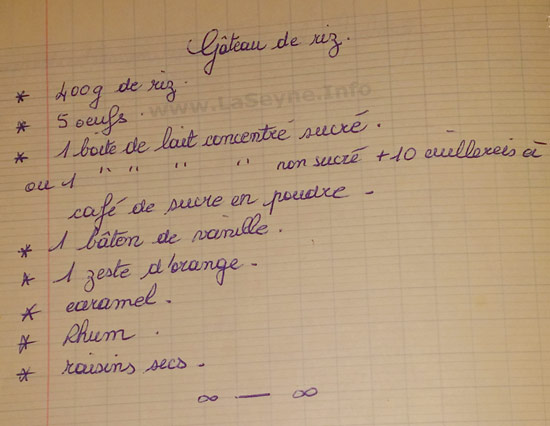 Gâteau de riz.
www.LaSeyne.Info
* 400g de riz.
* 5 oeufs.
* 1 boîte de lait concentré sucré.
ou 1 " " " " non sucré + 10 cuillerées à
café de sucre en poudre.
* 1 bâton de vanille.
* 1 zeste d'orange.
* caramel.
* Rhum.
* raisins secs.
∞ — ∞